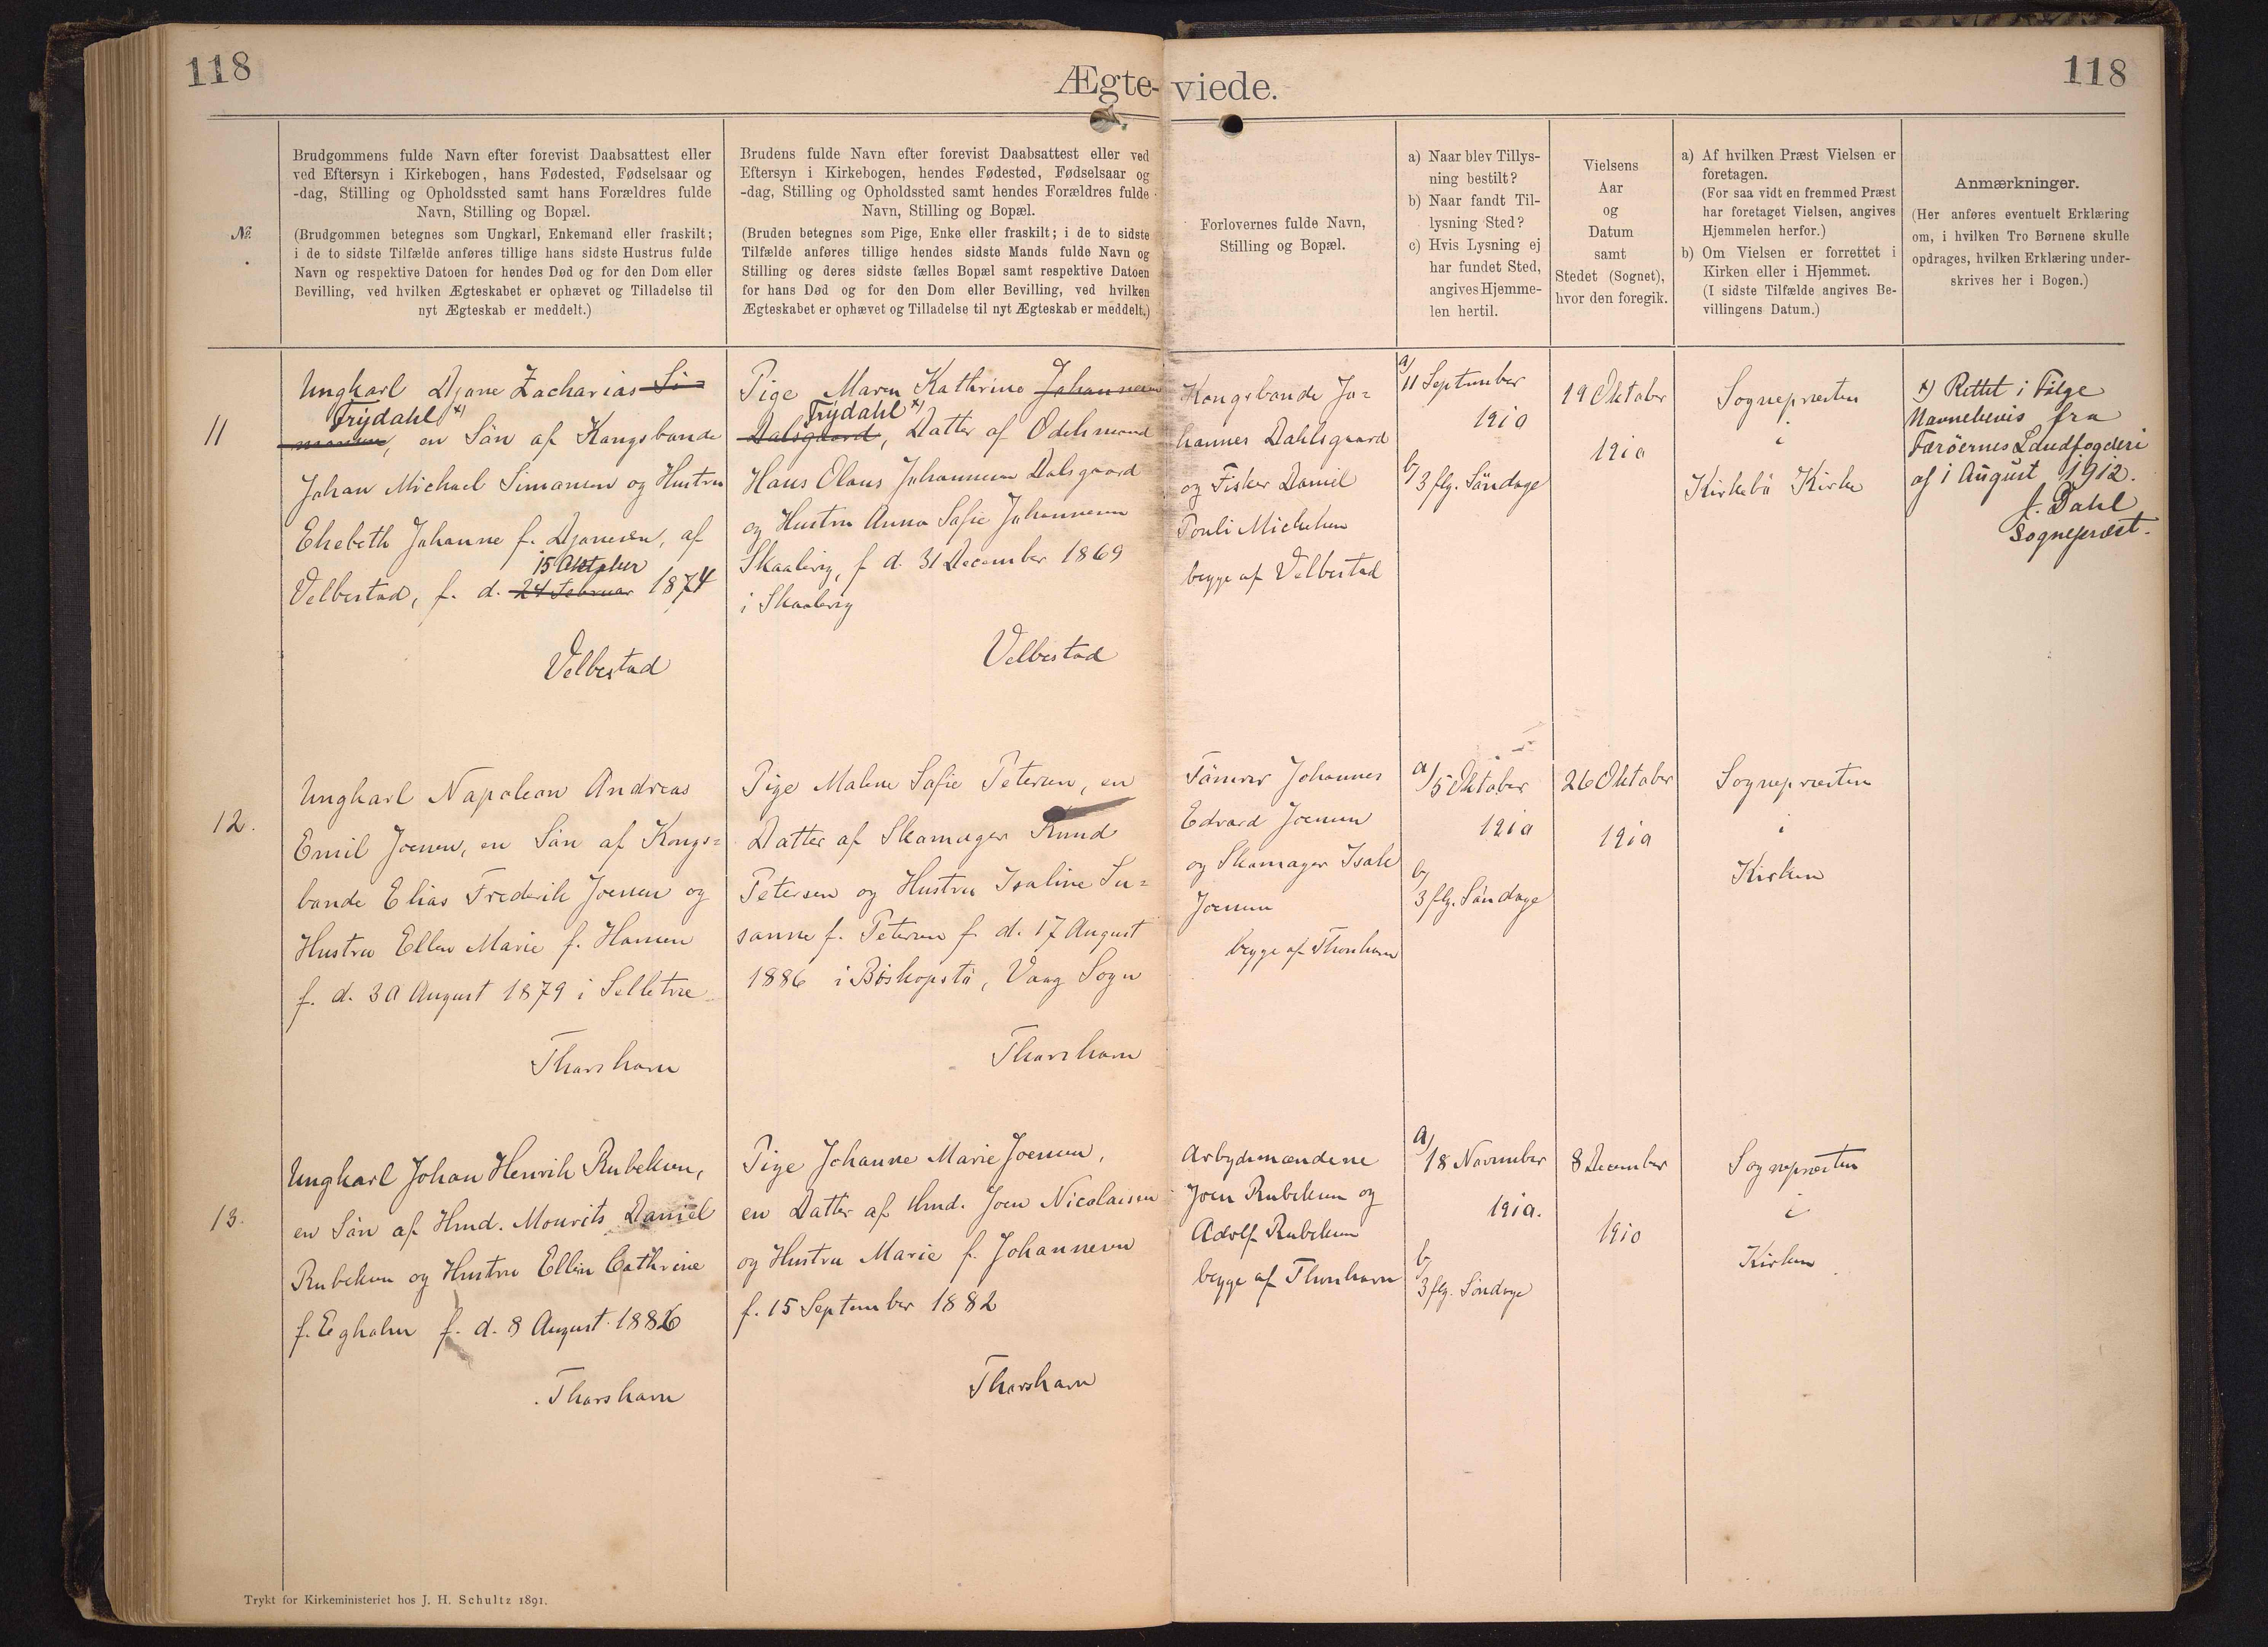 118
Ægte-viede.
118
№
Brudgommens fulde Navn efter forevist Daabsattest eller
ved Eftersyn i Kirkebogen, hans Fødested, Fødselsaar og
-dag, Stilling og Opholdssted samt hans Forældres fulde
Navn, Stilling og Bopæl.
(Brudgommen betegnes som Ungkarl, Enkemand eller fraskilt;
i de to sidste Tilfælde anføres tillige hans sidste Hustrus fulde
Navn og respektive Datoen for hendes Død og for den Dom eller
Bevilling, ved hvilken Ægteskabet er ophævet og Tilladelse til
nyt Ægteskab er meddelt.)
Brudens fulde Navn efter forevist Daabsattest eller ved
Eftersyn i Kirkebogen, hendes Fødested, Fødselsaar og
-dag, Stilling og Opholdssted samt hendes Forældres fulde
Navn, Stilling og Bopæl.
(Bruden betegnes som Pige, Enke eller fraskilt; i de to sidste
Tilfælde anføres tillige hendes sidste Mands fulde Navn og
Stilling og deres sidste fælles Bopæl samt respektive Datoen
for hans Død og for den Dom eller Bevilling, ved hvilken
Ægteskabet er ophævet og Tilladelse til nyt Ægteskab er meddelt.)
Forlovernes fulde Navn,
Stilling og Bopæl.
a) Naar blev Tillys-
ning bestilt?
b) Naar fandt Til-
lysning Sted?
c) Hvis Lysning ej
har fundet Sted,
angives Hjemme-
len hertil.
Vielsens
Aar
og
Datum
samt
Stedet (Sognet),
hvor den foregik.
a) Af hvilken Præst Vielsen er
foretagen.
(For saa vidt en fremmed Præst
har foretaget Vielsen, angives
Hjemmelen herfor.)
b) Om Vielsen er forrettet i
Kirken eller i Hjemmet.
(I sidste Tilfælde angives Be-
villingens Datum.)
Anmærkninger.
(Her anføres eventuelt Erklæring
om, i hvilken Tro Børnene skulle
opdrages, hvilken Erklæring under-
skrives her i Bogen.)
11
Ungkarl Djone Zacharias Si-
Frydahl x)
monsen, en Sön af Kongsbonde
Johan Michael Simonsen og Hustru
Elsebeth Johanne f. Djonesen, af
15 Oktober
Velbestad, f. d. 24 Februar 1874
Velbestad
Pige Maren Kathrine Johannesen
Frydahl x)
Dalsgaard, Datter af Odelsmand
Hans Olaus Johannesen Dalsgaard
og Hustru Anna Sofie Johannesen
Skaalevig, f d. 31 December 1869
i Skaalevig
Velbestad
Kongsbonde Jo-
hannes Dahlsgaard
og Fisker Daniel
Pouli Michelsen
begge af Velbestad
a/
11 September
1910
b/
3 flg. Söndage
19 Oktober
1910
Sognepræsten
i
Kirkebö Kirke
x) Rettet i Følge
Navnebevis fra
Færöernes Landfogderi
af 1 August 1912.
J. Dahl
Sognepræst.
12.
Ungkarl Napoleon Andreas
Emil Joensen, en Sön af Kongs-
bonde Elias Frederik Joensen og
Hustru Ellen Marie f. Hansen
f. d. 30 August 1879 i Selletræ
Thorshavn
Pige Malene Sofie Petersen, en
Datter af Skomager Knud
Petersen og Hustru Isaline Su-
sanne f. Petersen f. d. 17 August
1886 i Böskopstö, Vaag Sogn
Thorshavn
Tömrer Johannes
Edvard Joensen
og Skomager Isak
Joensen
begge af Thorshavn
a/
5 Oktober
1910
b/
3 flg. Söndage
26 Oktober
1910
Sognepræsten
i
Kirken
13.
Ungkarl Johan Henrik Rubeksen,
en Sön af Hmd. Mourits Daniel
Rubeksen og Hustru Ellen Cathrine
f. Egholm f. d. 8 August 1886
Thorshavn
Pige Johanne Marie Joensen,
en Datter af Hmd. Joen Nicolaisen
og Hustru Marie f. Johannesen
f. 15 September 1882
Thorshavn
Arbejdsmændene
Joen Rubeksen og
Adolf Rubeksen
begge af Thorshavn
a/
18 November
1910.
b/
3 flg. Söndage
8 December
1910
Sognepræsten
i
Kirken
Trykt for Kirkeministeriet hos J. H. Schultz 1891.